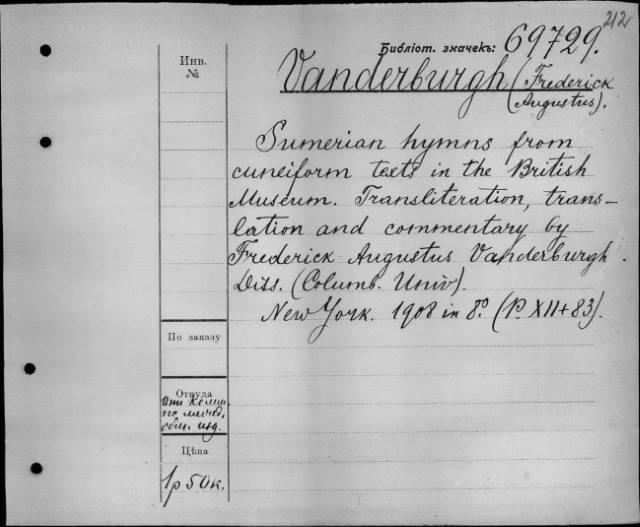 212
Библіот. значекъ: 69729.
Инв.
№
Vanderburgh (Frederick
Augustus).
Sumerian hymns from
cuneiform texts in the British
Museum. Transliteration, trans-
lation and commentary by
Frederick Augustus Vanderburgh.
Diss. (Columb. Univ).
New York. 1908 in 8º. (P. XII+83).
По заказу
Откуда
Отъ Комм.
по межд.
обм. изд.
Цѣна
1р 50к.